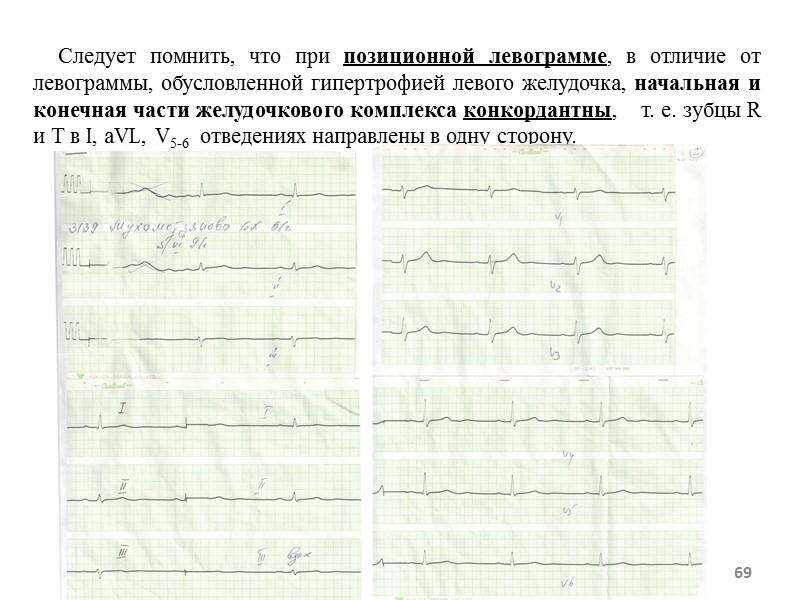 Следует помнить, что при позиционной левограмме, в отличие от
левограммы, обусловленной гипертрофией левого желудочка, начальная и
конечная части желудочкового комплекса конкордантны, т. е. зубцы R
и T в I, aVL, V5-6 отведениях направлены в одну сторону.
V1
3139
I
II
V2
III
V3
I
I
V4
II
II
V5
III
III вдох
V6
69